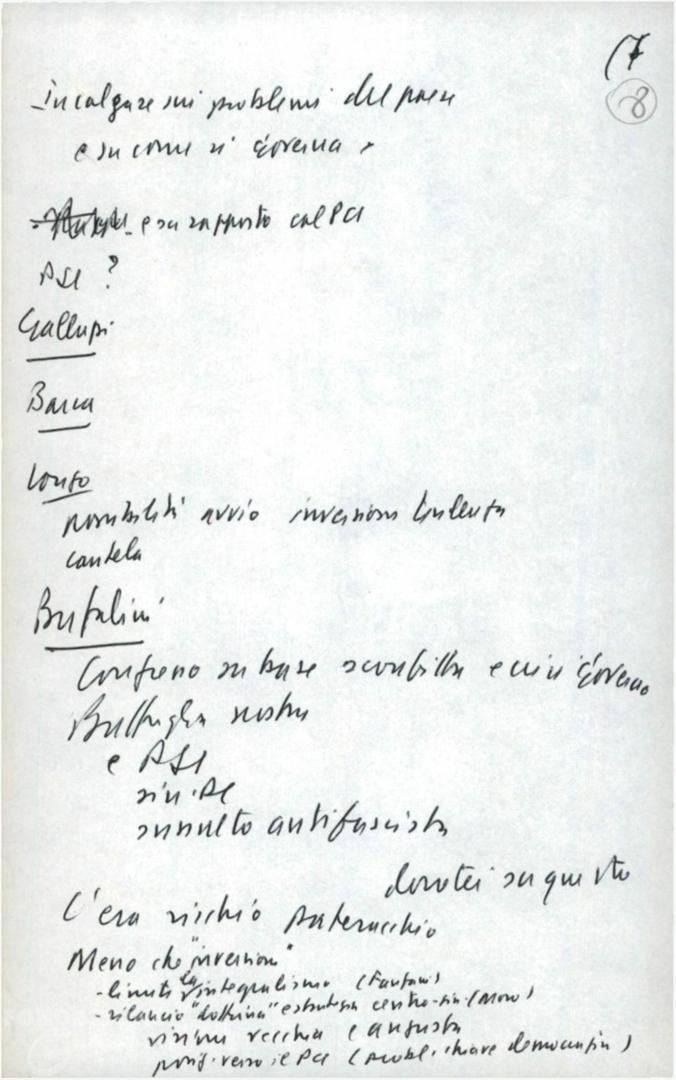 (7
8
- Incalzare sui problemi del paese
e su come si governa
e su rapporto col PCI
PSI ?
Galluzzi
Barca
Longo
possibilità avvio inversione tendenza
cautela
Bufalini
Congresso su base sconfitta e crisi governo
Battaglia nostra
e PSI
sin. DC
sussulto antifascista
dorotei su questo
C'era rischio pateracchio
Meno che "inversione"
- limiti la integralismo (Fanfani)
- rilancio "dottrina" e strategia centro-sin. (Moro)
visione vecchia e angusta
posiz. verso il PCI (probl. chiave democrazia)